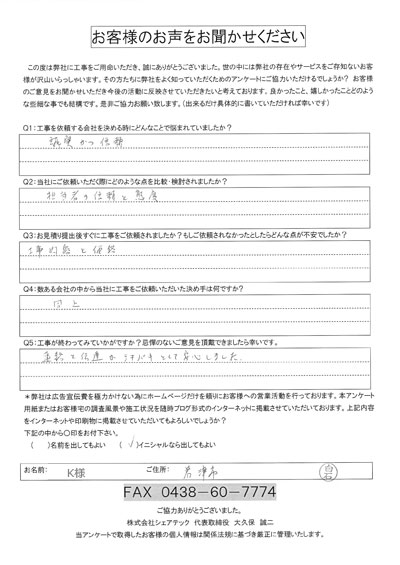 お客様のお声をお聞かせください
この度は弊社に工事をご用命いただき、誠にありがとうございました。世の中には弊社の存在やサービスをご存知ないお客
様が沢山いらっしゃいます。その方たちに弊社をよく知っていただくためのアンケートにご協力いただけるでしょうか？ お客様
のご意見をお聞かせいただき今後の活動に反映させていただきたいと考えております。良かったこと、嬉しかったことどのよう
な些細な事でも結構です。是非ご協力お願い致します。（出来るだけ具体的に書いていただければ幸いです）
Q1:工事を依頼する会社を決める時にどんなことで悩まれていましたか？
誠実かつ信頼
Q2:当社にご依頼いただく際にどのような点を比較・検討されましたか？
担当者の信頼と態度
Q3:お見積り提出後すぐに工事をご依頼されましたか？もしご依頼されなかったとしたらどんな点が不安でしたか？
工事内容と価格
Q4:数ある会社の中から当社に工事をご依頼いただいた決め手は何ですか？
同上
Q5:工事が終わってみていかがですか？忌憚のないご意見を頂戴できましたら幸いです。
連絡と伝達がテキパキとして安心しました。
＊弊社は広告宣伝費を極力かけない為にホームページだけを頼りにお客様への営業活動を行っております。本アンケート
用紙またはお客様宅の調査風景や施工状況を随時ブログ形式のインターネットに掲載させていただいております。上記内容
をインターネットや印刷物に掲載させていただいてもよろしいでしょうか？
下記の中から〇印をお付下さい。
（　）名前を出してもよい （✓）イニシャルなら出してもよい
お名前: K様 ご住所: 君津市
FAX 0438-60-7774
ご協力ありがとうございました。
株式会社シェアテック 代表取締役 大久保 誠二
当アンケートで取得したお客様の個人情報は関係法規に基づき厳正に管理いたします。